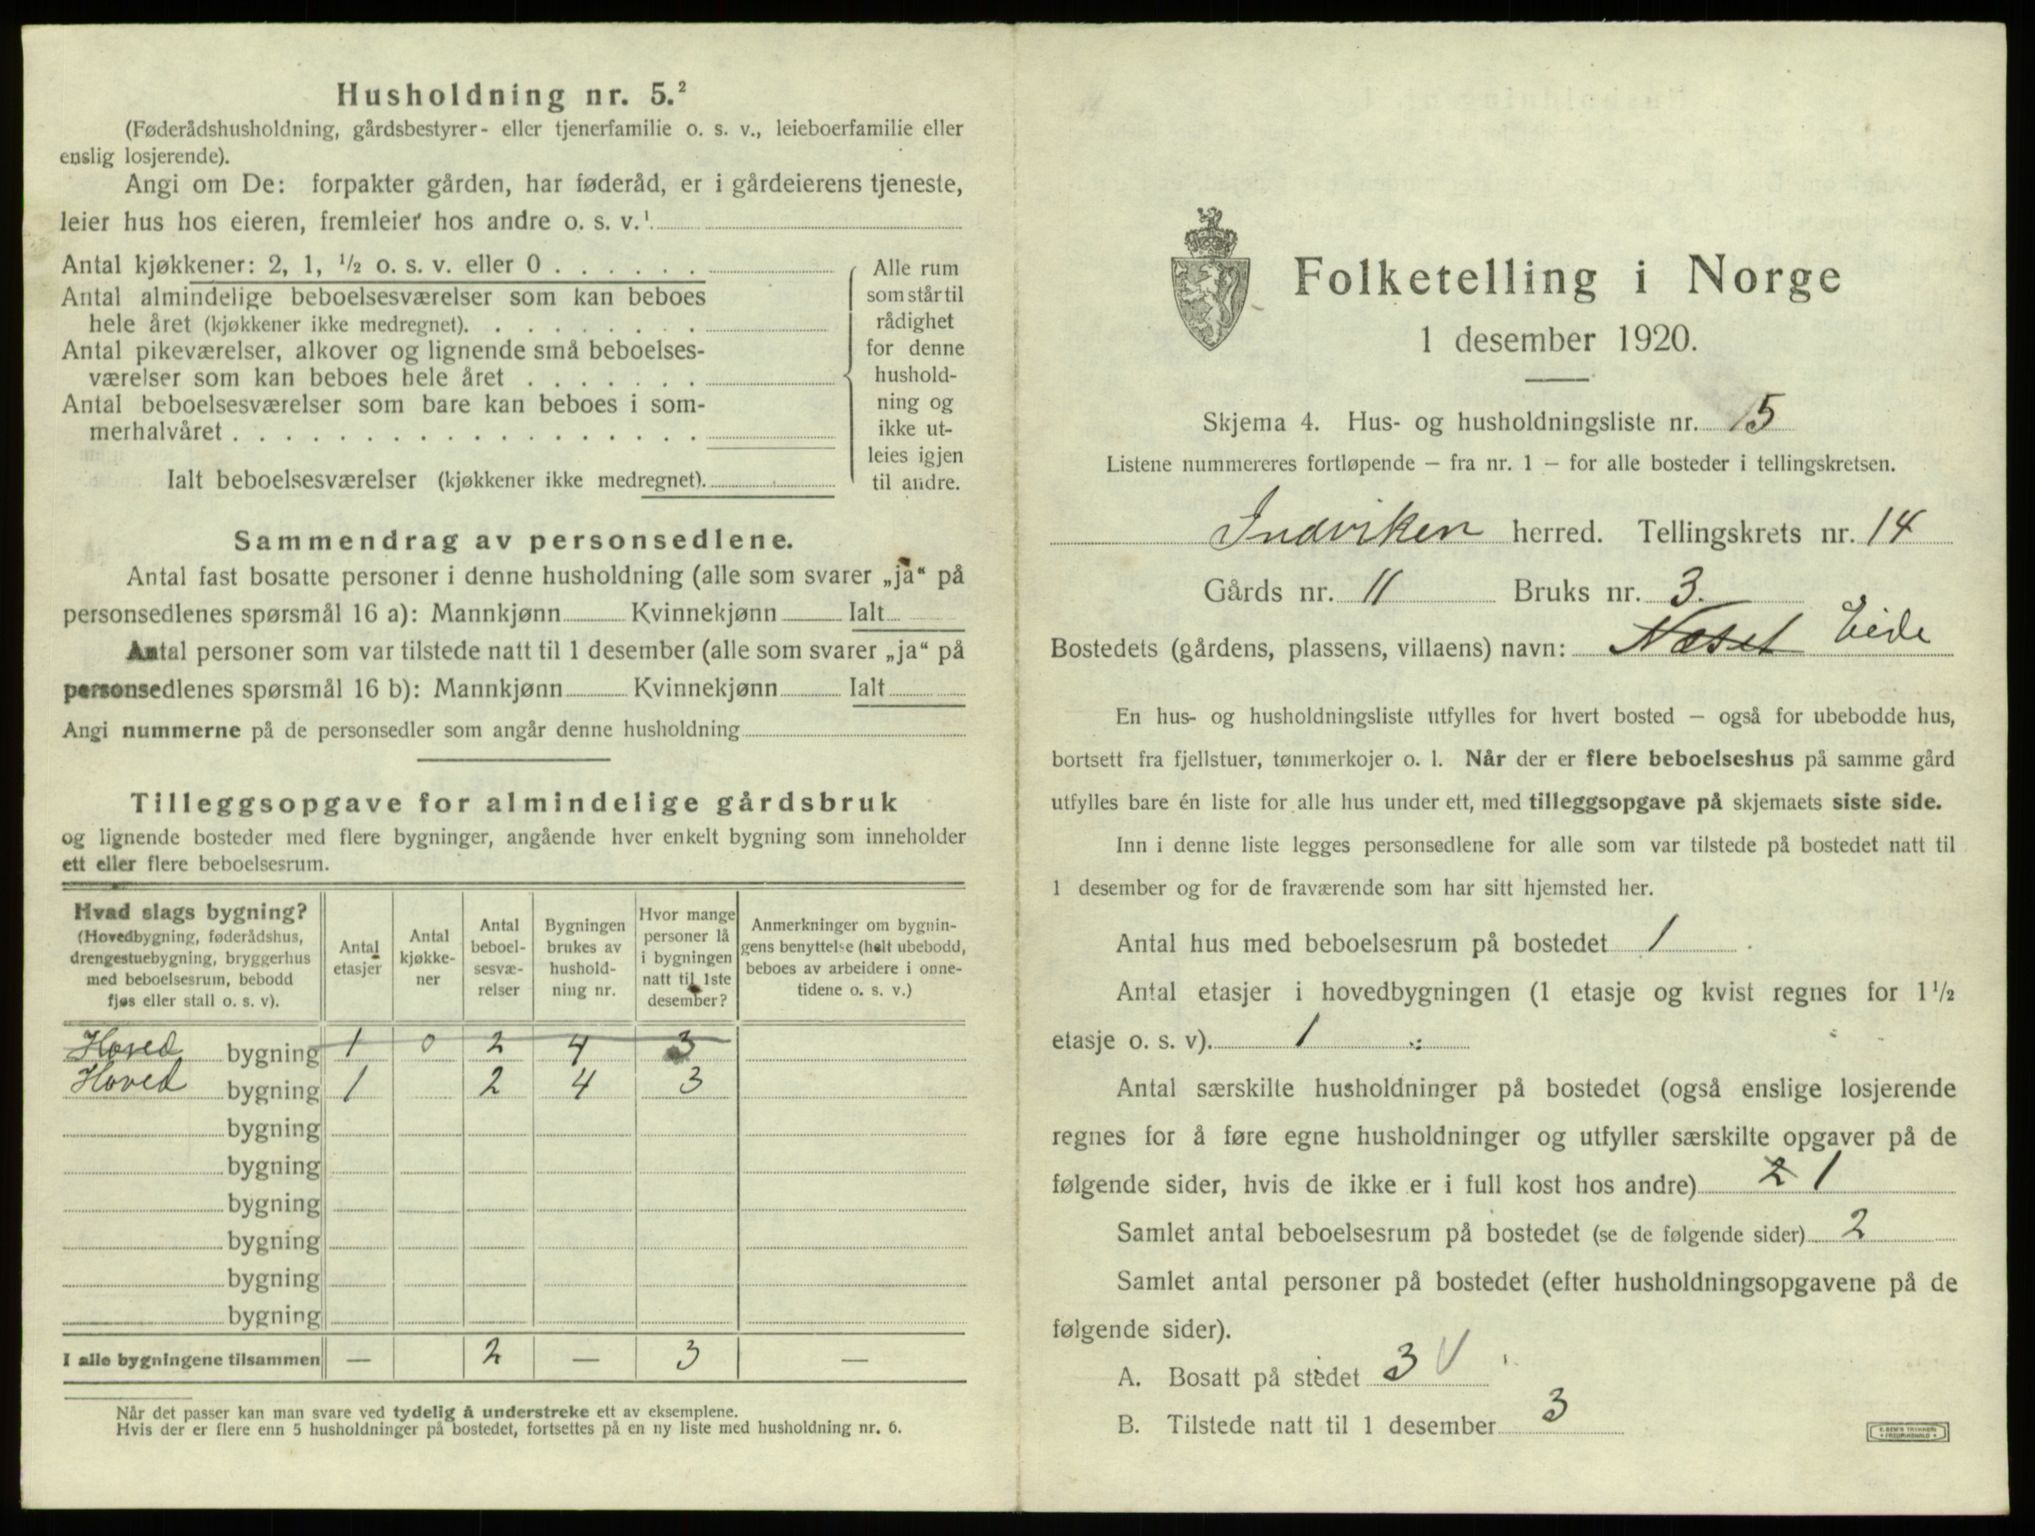 Husholdning nr. 5.²
(Føderådshusholdning, gårdsbestyrer- eller tjenerfamilie o. s. v., leieboerfamilie eller
enslig losjerende).
Angi om De: forpakter gården, har føderåd, er i gårdeierens tjeneste,
leier hus hos eieren, fremleier hos andre o. s. v.¹
Antal kjøkkener: 2, 1, ½ o. s. v. eller 0
Antal almindelige beboelsesværelser som kan beboes
hele året (kjøkkener ikke medregnet).
Antal pikeværelser, alkover og lignende små beboelses-
værelser som kan beboes hele året
Antal beboelsesværelser som bare kan beboes i som-
merhalvåret
Ialt beboelsesværelser (kjøkkener ikke medregnet).
Alle rum
som står til
rådighet
for denne
hushold-
ning og
ikke ut-
leies igjen
til andre.
Sammendrag av personsedlene.
Antal fast bosatte personer i denne husholdning (alle som svarer „ja“ på
personsedlenes spørsmål 16 a): Mannkjønn Kvinnekjønn Ialt
Antal personer som var tilstede natt til 1 desember (alle som svarer „ja“ på
personsedlenes spørsmål 16 b): Mannkjønn Kvinnekjønn Ialt
Angi nummerne på de personsedler som angår denne husholdning
Tilleggsopgave for almindelige gårdsbruk
og lignende bosteder med flere bygninger, angående hver enkelt bygning som inneholder
ett eller flere beboelsesrum.
Hvad slags bygning?
(Hovedbygning, føderådshus,
drengestuebygning, bryggerhus
med beboelsesrum, bebodd
fjøs eller stall o. s. v).
Antal
etasjer
Antal
kjøkke-
ner
Antal
beboel-
sesvæ-
relser
Bygningen
brukes av
hushold-
ning nr.
Hvor mange
personer lå
i bygningen
natt til 1ste
desember?
Anmerkninger om bygnin-
gens benyttelse (helt ubebodd,
beboes av arbeidere i onne-
tidene o. s. v.)
Hoved bygning 1 0 2 4 3
Hoved bygning 1 2 4 3
bygning
bygning
bygning
bygning
bygning
bygning
I alle bygningene tilsammen — 2 — 3 —
Når det passer kan man svare ved tydelig å understreke ett av eksemplene.
Hvis der er flere enn 5 husholdninger på bostedet, fortsettes på en ny liste med husholdning nr. 6.
Folketelling i Norge
1 desember 1920.
Skjema 4. Hus- og husholdningsliste nr. 15
Listene nummereres fortløpende – fra nr. 1 – for alle bosteder i tellingskretsen.
Indviken herred. Tellingskrets nr. 14
Gårds nr. 11 Bruks nr. 3.
Bostedets (gårdens, plassens, villaens) navn: Næset Eide
En hus- og husholdningsliste utfylles for hvert bosted – også for ubebodde hus,
bortsett fra fjellstuer, tømmerkojer o. l. Når der er flere beboelseshus på samme gård
utfylles bare én liste for alle hus under ett, med tilleggsopgave på skjemaets siste side.
Inn i denne liste legges personsedlene for alle som var tilstede på bostedet natt til
1 desember og for de fraværende som har sitt hjemsted her.
Antal hus med beboelsesrum på bostedet 1
Antal etasjer i hovedbygningen (1 etasje og kvist regnes for 1½
etasje o. s. v). 1
Antal særskilte husholdninger på bostedet (også enslige losjerende
regnes for å føre egne husholdninger og utfyller særskilte opgaver på de
følgende sider, hvis de ikke er i full kost hos andre) 2 1
Samlet antal beboelsesrum på bostedet (se de følgende sider) 2
Samlet antal personer på bostedet (efter husholdningsopgavene på de
følgende sider).
A. Bosatt på stedet 3
B. Tilstede natt til 1 desember 3